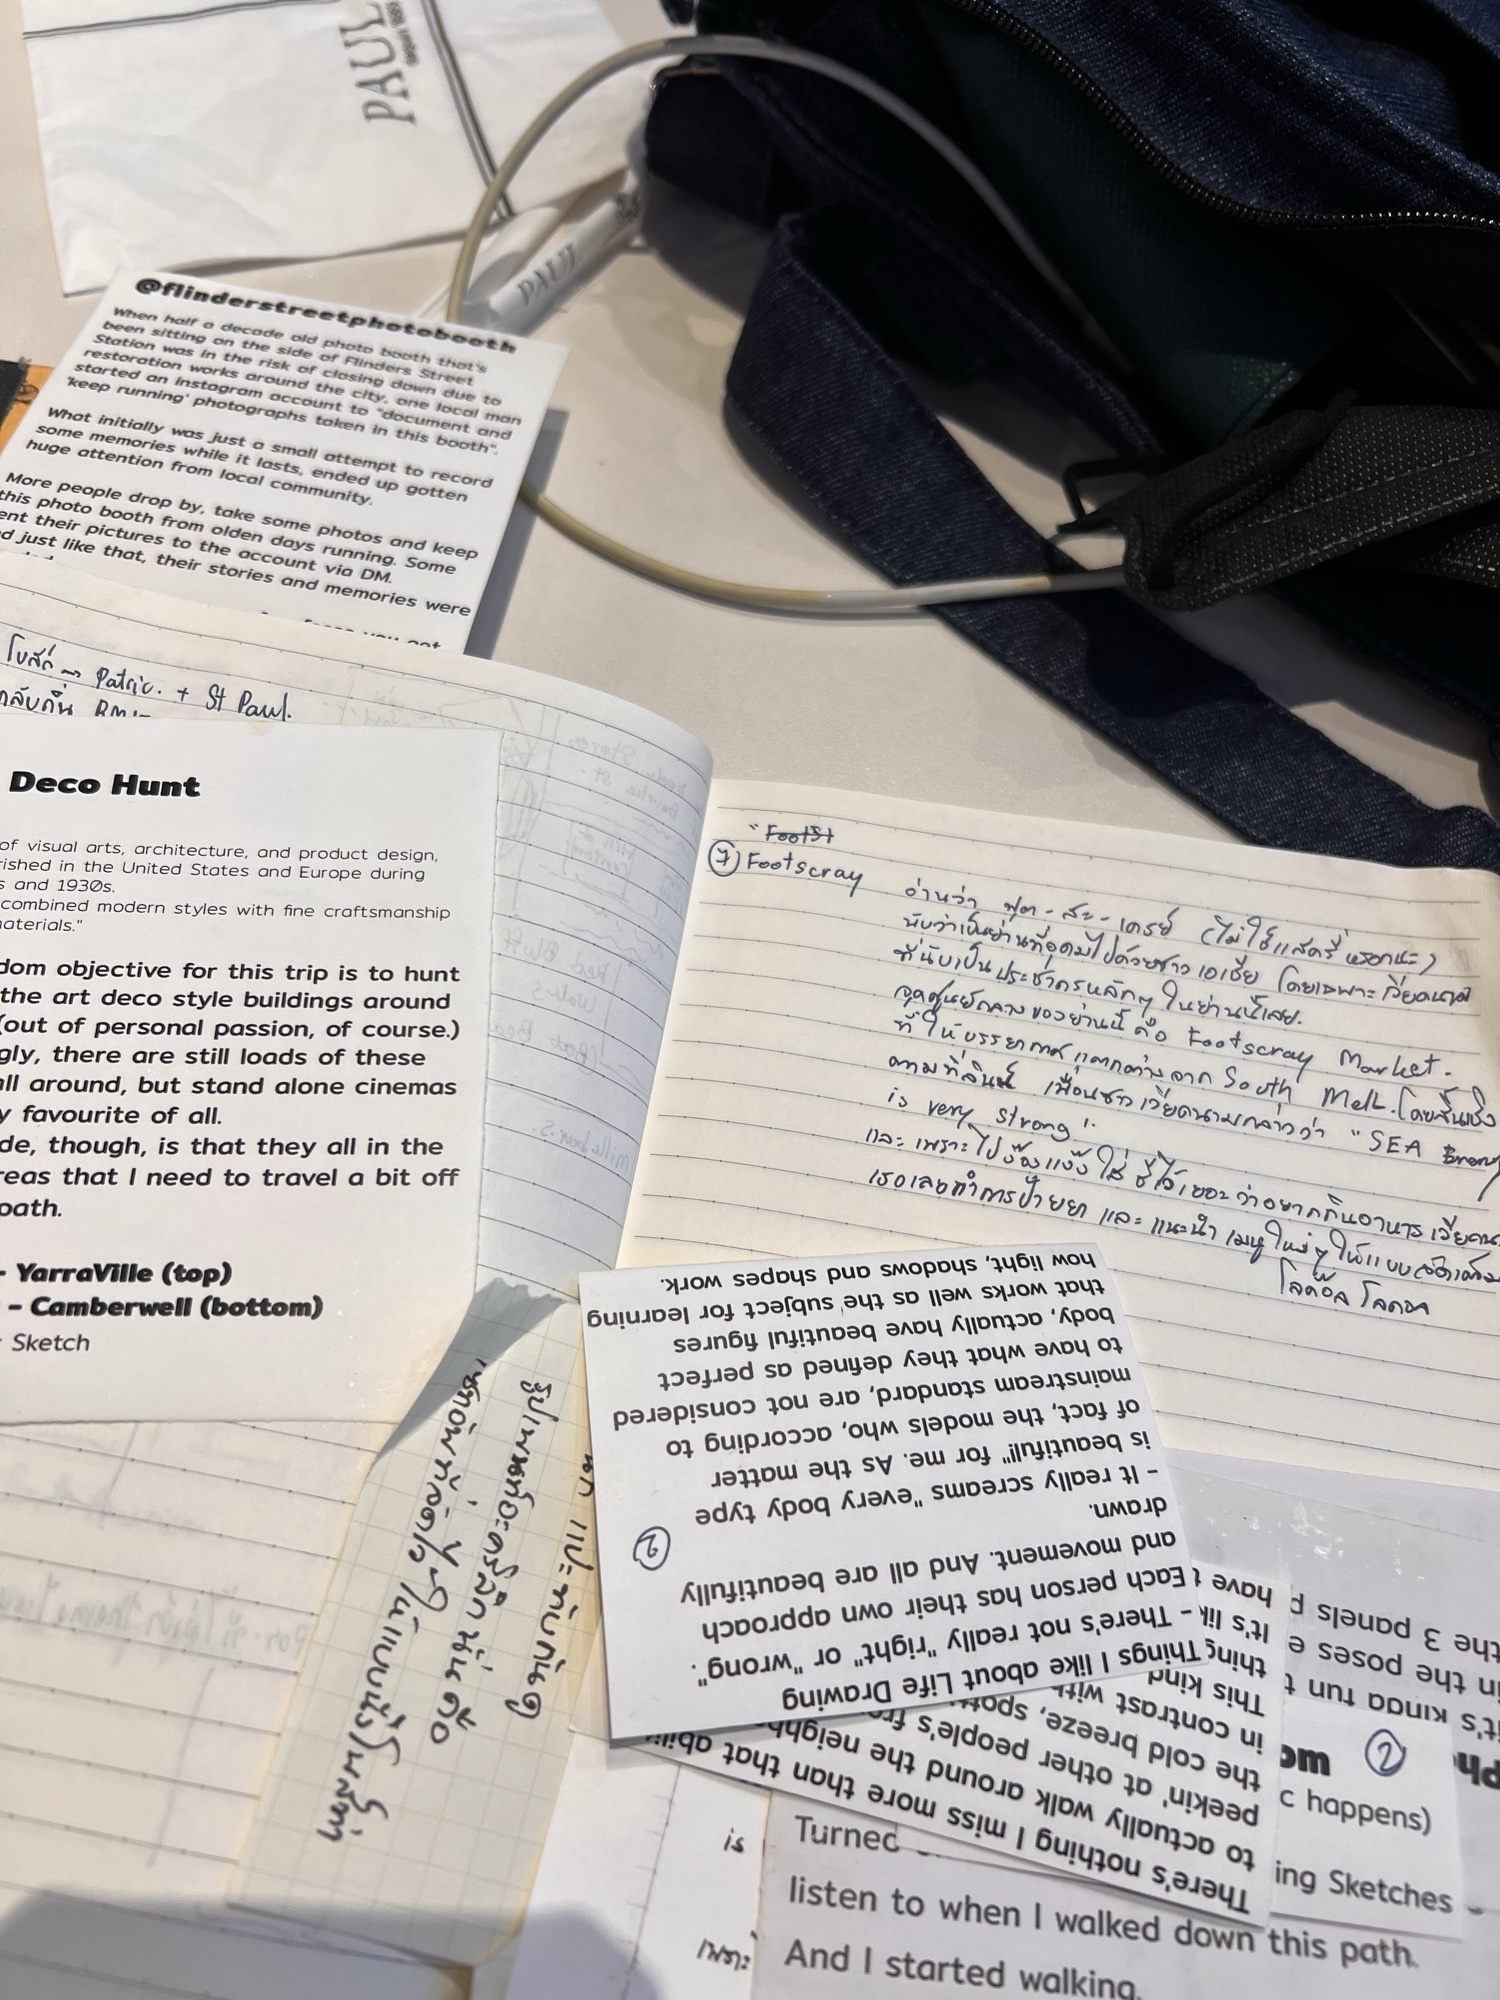 PAUL
depuis 1889
PAUL
@flinderstreetphotobooth
When half a decade old photo booth that's
been sitting on the side of Flinders Street
Station was in the risk of closing down due to
restoration works around the city, one local man
started an instagram account to "document and
'keep running' photographs taken in this booth".
What initially was just a small attempt to record
some memories while it lasts, ended up gotten
huge attention from local community.
More people drop by, take some photos and keep
this photo booth from olden days running. Some
ent their pictures to the account via DM.
d just like that, their stories and memories were
โบสถ์ → Patric. + St Paul.
กลับถิ่น RMI
Deco Hunt
of visual arts, architecture, and product design,
rished in the United States and Europe during
s and 1930s.
combined modern styles with fine craftsmanship
materials."
dom objective for this trip is to hunt
the art deco style buildings around
(out of personal passion, of course.)
gly, there are still loads of these
all around, but stand alone cinemas
y favourite of all.
de, though, is that they all in the
reas that I need to travel a bit off
path.
- YarraVille (top)
- Camberwell (bottom)
Sketch
"FootSt
7 Footscray
อ่านว่า ฟุต - สะ - เครย์ (ไม่ใช่แสครี่หรอกนะ)
นับว่าเป็นย่านที่อุดมไปด้วยชาวเอเชีย โดยเฉพาะเวียดนาม
ที่นับเป็นประชากรหลักๆ ในย่านนี้เลย.
จุดศูนย์กลางของย่านนี้ คือ Footscray Market.
ที่ให้บรรยากาศแตกต่างจาก South Melb. โดยสิ้นเชิง
ตามที่ลินน์ เพื่อนชาวเวียดนามกล่าวว่า "SEA Energy
is very strong".
และ เพราะไปบ๊งแบ๊วใส่ ชีไว้เยอะ ว่าอยากกินอาหารเวียดนา
เธอเลยทำการป้ายยา และ แนะนำ เมนูใหม่ๆ ให้แบบจัดเต็ม
Things I like about Life Drawing
- There's not really "right" or "wrong".
Each person has their own approach
and movement. And all are beautifully
drawn.
- It really screams "every body type
is beautiful!" for me. As the matter
of fact, the models who, according to
mainstream standard, are not considered
to have what they defined as perfect
body, actually have beautiful figures
that works well as the subject for learning
how light, shadows and shapes work.
2
There's nothing I miss more than that abili
to actually walk around the neighb
peekin' at other people's fr
the cold breeze, spott
in contrast with
This kind
thing
It's lik
have
it's kinda fun t
in the poses e
the 3 panels p
2
c happens)
ing Sketches -
Turned
listen to when I walked down this path.
And I started walking.
is
เพราะ